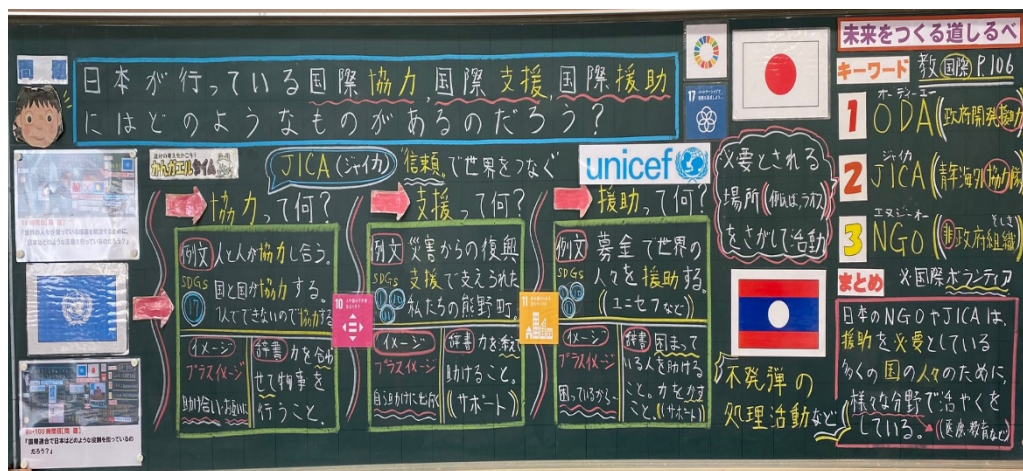 問題
日本が行っている国際協力、国際支援、国際援助
にはどのようなものがあるのだろう?
17
未来をつくる道しるべ
キーワード 教国際P.106
オーディーエー
1 ODA(政府開発援助)
ジャイカ
2 JICA(青年海外協力隊)
エヌジーオー
そしき
3 NGO(非政府組織)
まとめ
※国際ボランティア
日本のNGOやJICAは、
援助を必要としている
多くの国の人々のために、
様々な分野で活やくを
している。
(医療、教育など)
JICA(ジャイカ)
"信頼"で世界をつなぐ
unicef
協力って何?
例文 人と人が協力し合う。
SDGs
17
国と国が協力する。
1人でできないので協力する
イメージ
プラスイメージ
助け合い・お互いに
辞書 力を合わ
せて物事を
行うこと。
10
支援って何?
例文 災害からの復興
SDGs
支援で支えられた
私たちの熊野町。
イメージ
プラスイメージ
辞書 力を添え
助けること。
(サポート)
11
援助って何?
例文 募金で世界の
SDGs
人々を援助する。
(ユニセフなど)
イメージ
プラスイメージ
困っているから…
辞書 困って
いる人を助ける
こと。力をかす
こと。(サポート)
必要とされる
場所(例えば、ラオス)
をさがして活動
不発弾の
処理活動など
「国際連合で日本はどのような役割を担っているの
だろう?」